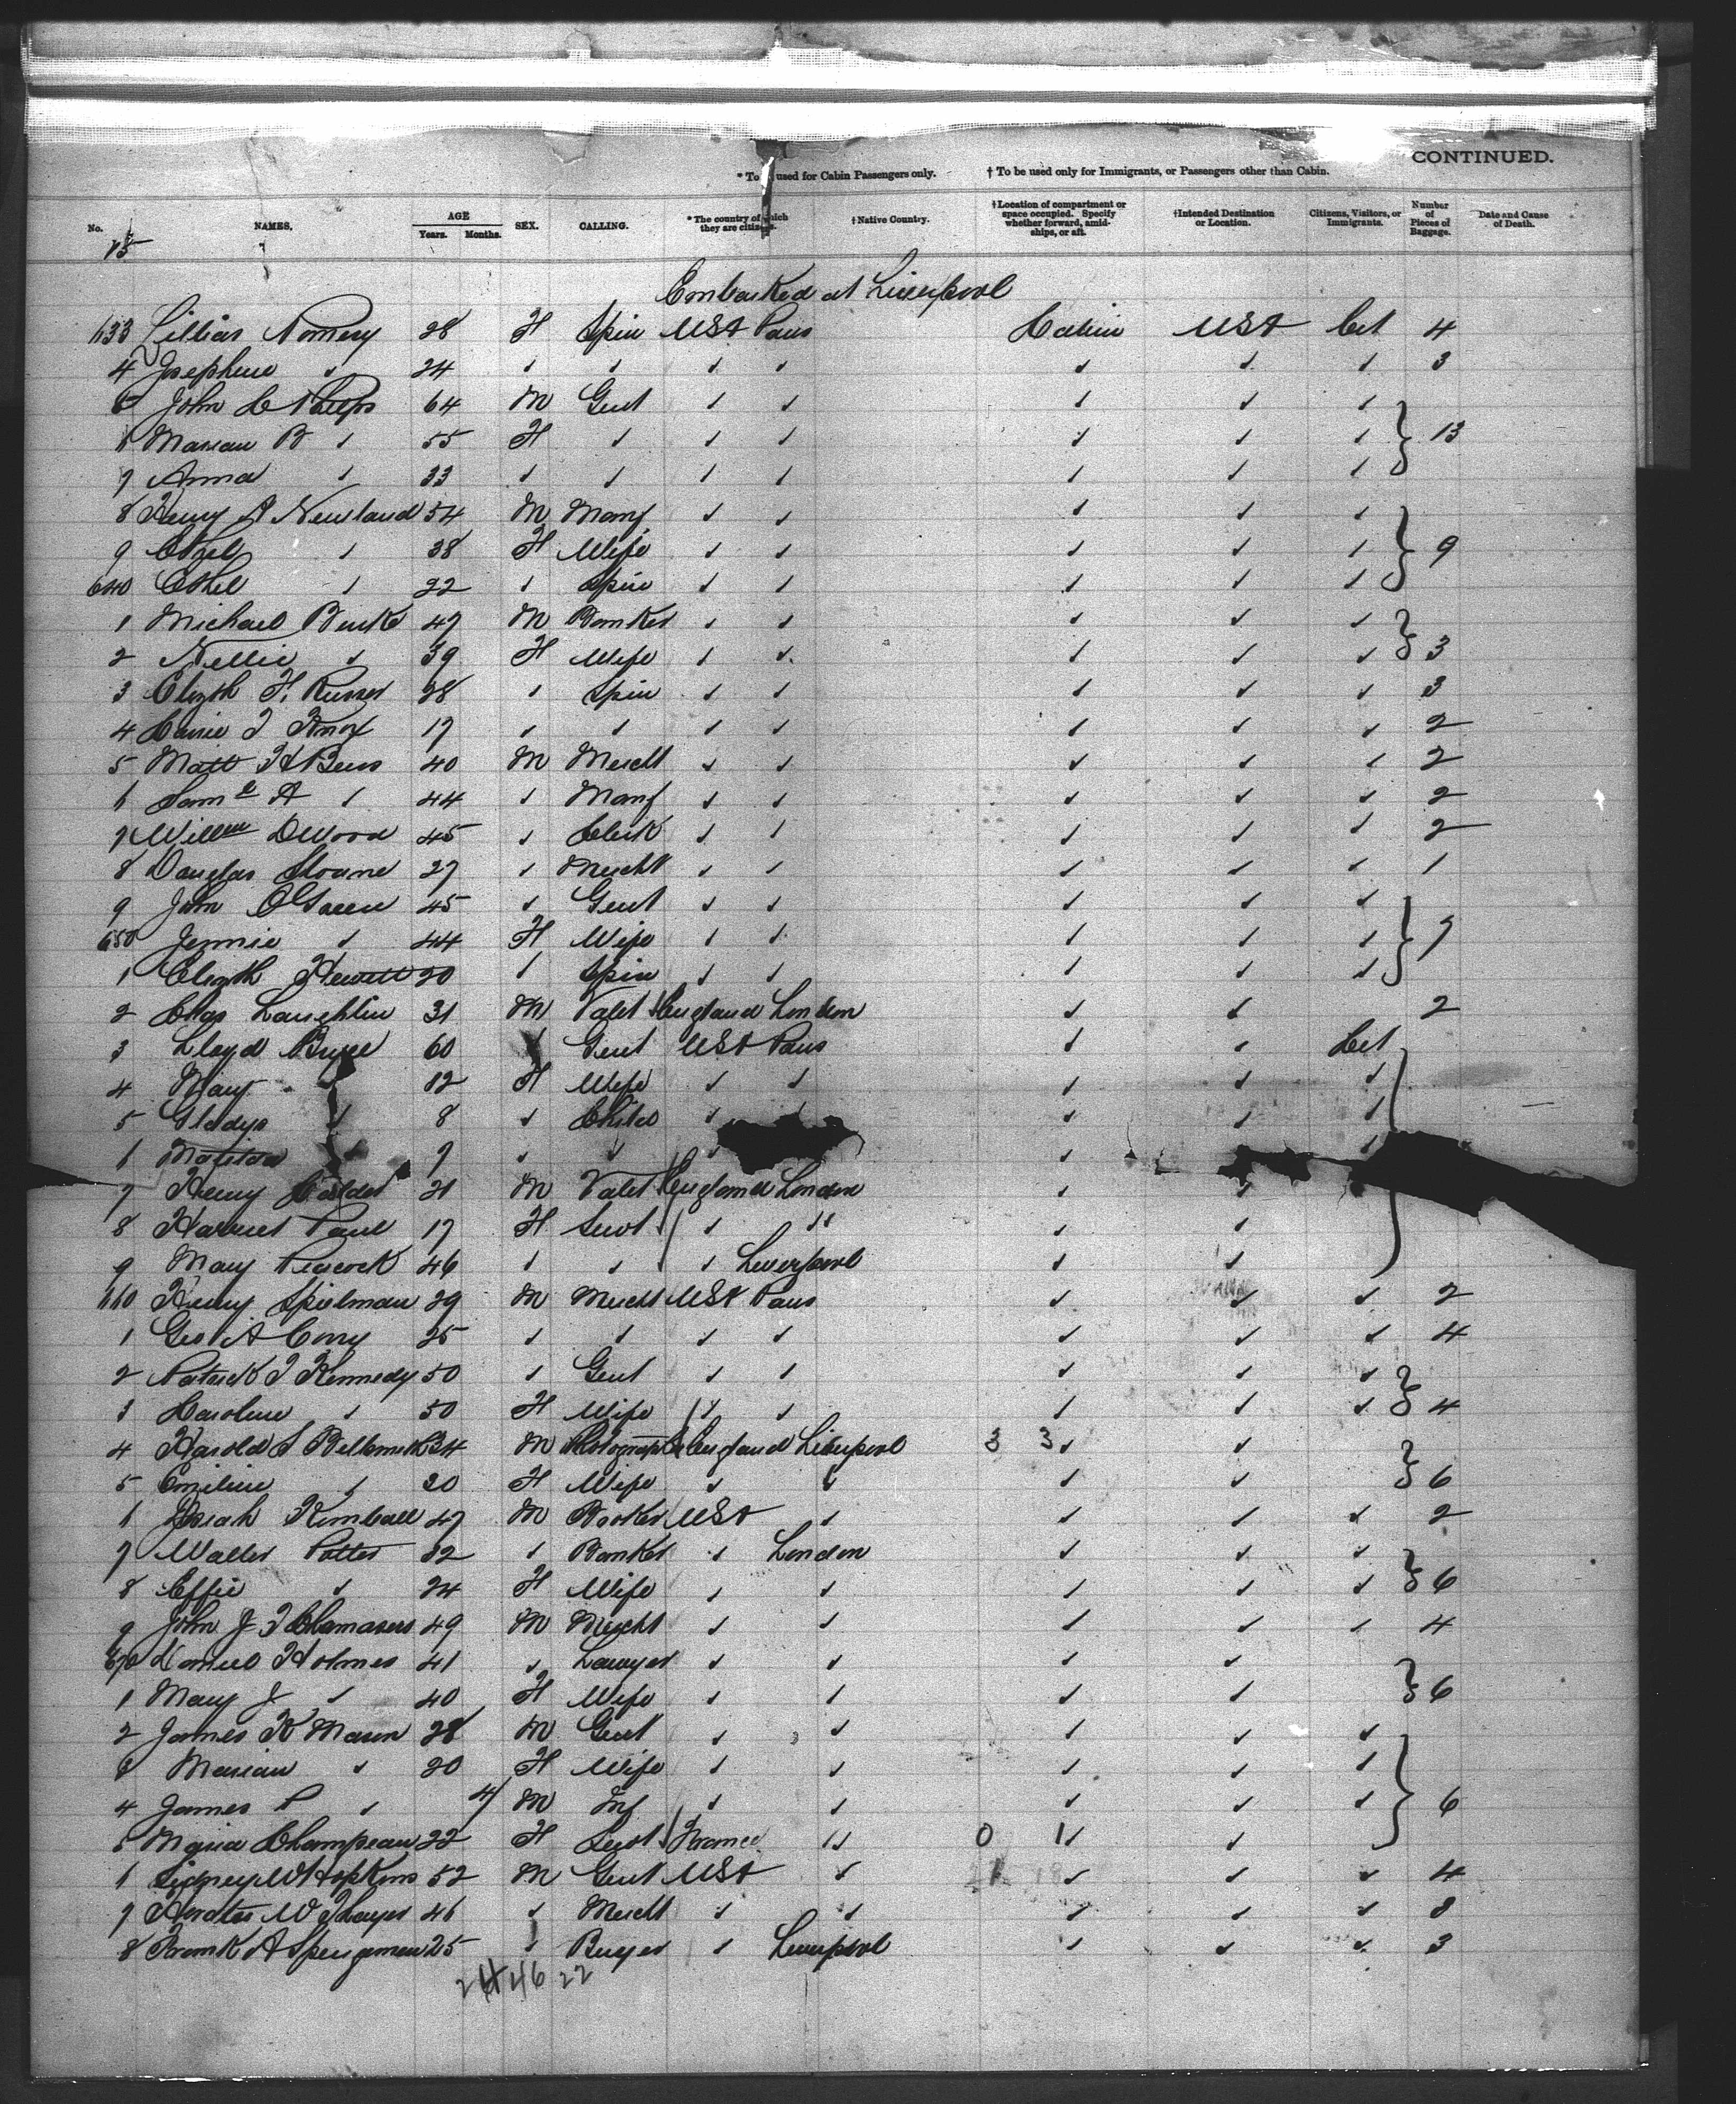 CONTINUED.
* To used for Cabin Passengers only. † To be used only for Immigrants, or Passengers other than Cabin.
No. NAMES. AGE Years. Months. SEX. CALLING. * The country of which they are citizens. † Native Country. † Location of compartment or space occupied. Specify whether forward, amidships, or aft. † Intended Destination or Location. Citizens, Visitors, or Immigrants. Number of Pieces of Baggage. Date and Cause of Death.
Embarked at Liverpool
633 Lillias 28 F Spin USA Paris Cabin USA Cit 4
4 Josephine ✓ 24 ✓ ✓ ✓ ✓ ✓ ✓ ✓ 3
5 John C Phelps 64 M Gent ✓ ✓ ✓ ✓ ✓
6 Marian B ✓ 55 F ✓ ✓ ✓ ✓ ✓ ✓ 13
7 Anna ✓ 33 ✓ ✓ ✓ ✓ ✓ ✓ ✓
8 Henry A Newland 54 M Manf ✓ ✓ ✓ ✓ ✓
9 ✓ 38 F Wife ✓ ✓ ✓ ✓ ✓ 9
640 Ethel ✓ 22 ✓ Spin ✓ ✓ ✓ ✓ ✓
1 Michael Burke 47 M Banker ✓ ✓ ✓ ✓ ✓
2 Nellie ✓ 39 F Wife ✓ ✓ ✓ ✓ ✓ 3
3 Elizth F. 28 ✓ Spin ✓ ✓ ✓ ✓ ✓ 3
4 Knox 17 ✓ ✓ ✓ ✓ ✓ ✓ ✓ 2
5 Matt H 40 M Mercht ✓ ✓ ✓ ✓ ✓ 2
6 Saml A ✓ 44 ✓ Manf ✓ ✓ ✓ ✓ ✓ 2
7 Willm D Wood 45 ✓ Clerk ✓ ✓ ✓ ✓ ✓ 2
8 Douglas Sloane 27 ✓ Mercht ✓ ✓ ✓ ✓ ✓ 1
9 John 45 ✓ Gent ✓ ✓ ✓ ✓ ✓
650 Jennie ✓ 44 F Wife ✓ ✓ ✓ ✓ ✓ 7
1 Elizth Hewett 20 ✓ Spin ✓ ✓ ✓ ✓ ✓
2 Chas Laughlin 31 M Valet England London ✓ ✓ 2
3 Lloyd Bryce 60 ✓ Gent USA Paris ✓ ✓ Cit
4 Mary ✓ F Wife ✓ ✓ ✓ ✓ ✓
5 Gladys ✓ 8 ✓ Child ✓ ✓ ✓ ✓ ✓
6 Matilda ✓ 7 ✓ ✓ ✓ ✓ ✓
7 Henry 21 M Valet England London ✓ ✓
8 Harriet Paul 17 F Servt ✓ ✓ ✓ ✓
9 Mary Peacock 46 ✓ ✓ ✓ Liverpool ✓ ✓
660 Henry Spielman 29 M Mercht USA Paris ✓ ✓ ✓ 2
1 Geo A Cory 25 ✓ ✓ ✓ ✓ ✓ ✓ ✓ 4
2 Patrick J Kennedy 50 ✓ Gent ✓ ✓ ✓ ✓ ✓
3 Caroline ✓ 50 F Wife ✓ ✓ ✓ ✓ ✓ 4
4 Harold S 34 M England Liverpool 3 3 ✓ ✓
5 Emiline ✓ 30 F Wife ✓ ✓ ✓ ✓ 6
6 Kimball 47 M USA ✓ ✓ ✓ ✓ 2
7 Walter Potter 32 ✓ Banker ✓ London ✓ ✓ ✓
8 Effie ✓ 24 F Wife ✓ ✓ ✓ ✓ ✓ 6
9 John J 49 M Mercht ✓ ✓ ✓ ✓ ✓ 4
670 Holmes 41 ✓ Lawyer ✓ ✓ ✓ ✓
1 Mary J ✓ 40 F Wife ✓ ✓ ✓ ✓ 6
2 James K Mason 28 M Gent ✓ ✓ ✓ ✓ ✓
Marian ✓ 20 F Wife ✓ ✓ ✓ ✓ ✓
4 James P ✓ 4/ M Inf ✓ ✓ ✓ ✓ ✓ 6
5 Maria Champeau 22 F Servt France ✓ 0 1 ✓
6 Sidney W Hopkins 52 M Gent USA ✓ ✓ ✓ ✓ 4
7 W Thayer 46 ✓ Mercht ✓ ✓ ✓ ✓ ✓ 8
8 Frank A 25 ✓ Buyer ✓ Liverpool ✓ ✓ ✓ 3
46 22